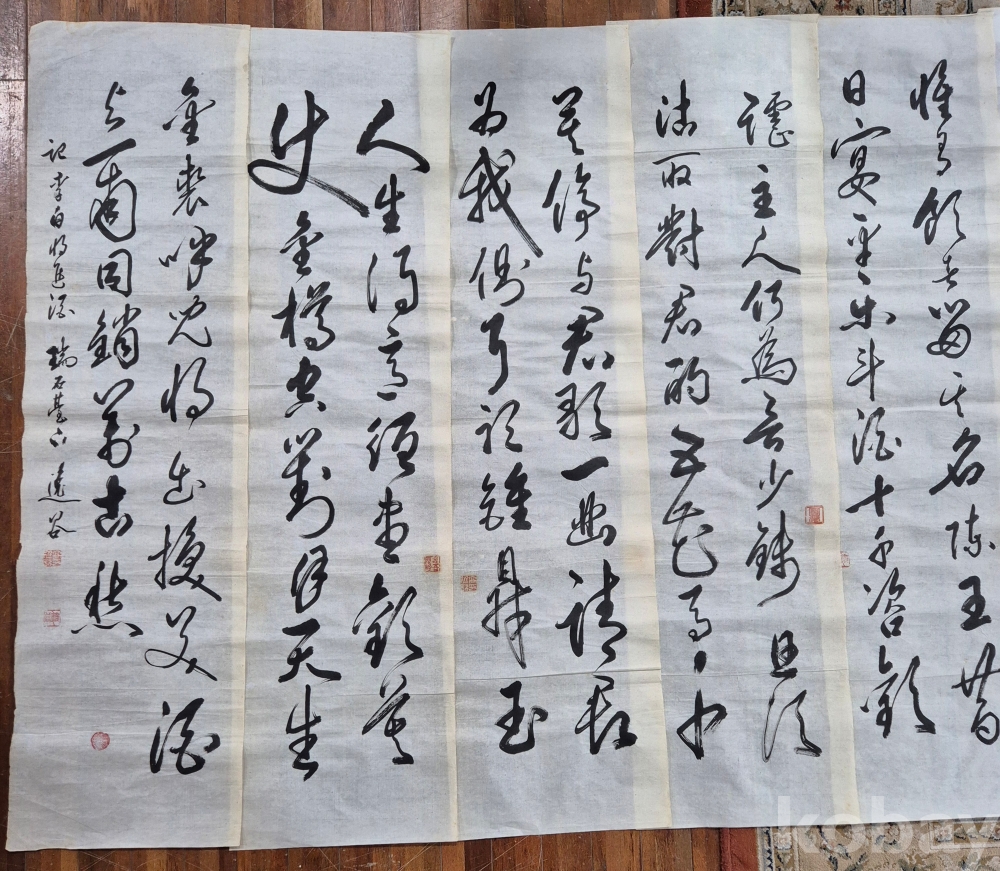 惟有飲者留其名陳王昔
日宴平樂斗酒十千恣歡
謔主人何為言少錢且須
沽取對君酌五花馬千
莫停与君歌一曲請君
为我側耳聽鐘鼎玉
人生得意須盡歡莫
使金樽空對月天生
金裘呼兒將出換美酒
与爾同銷萬古愁
記李白將進酒 瑞石臺下 谷
kobay